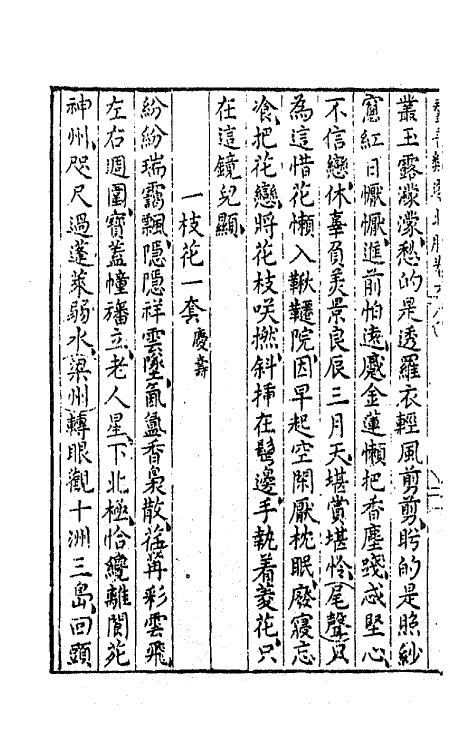 叢玉露濛濛愁的是透羅衣輕風剪剪盻的是照紗
窻紅日懨懨進前怕遠蹙金蓮懶把香塵踐忒堅心
不信戀休辜負美景良辰三月天堪賞堪怜尾聲只
為這惜花懶入鞦韆院因早起空閑厭枕眠廢寢忘
飡把花戀將花枝咲撚斜揷在髩邊手執着菱花只
在這鏡兒顯
一枝花一套慶壽
紛紛瑞靄飄隱隱祥雲墜氤氳香裊散苒彩雲飛
左右週圍寶蓋幢旛立老人星下北極恰纔離閬苑
神州咫尺過蓬萊弱水梁州轉眼觀十洲三島回頭